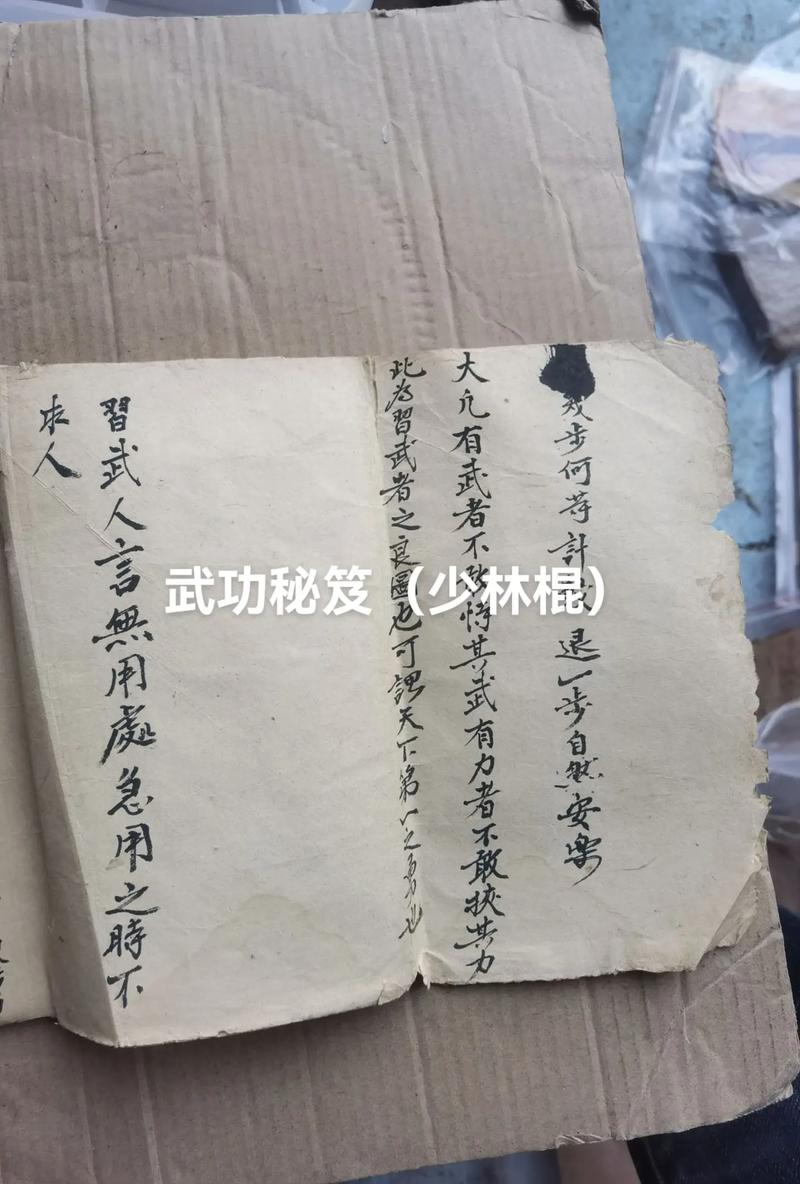 步何計退一步自然安樂
大凢有武者不敢恃其武有力者不敢挾其力
此為習武者之良圖也可謂天下第一之勇也
武功秘笈（少林棍）
習武人言無用處急用之時不
求人